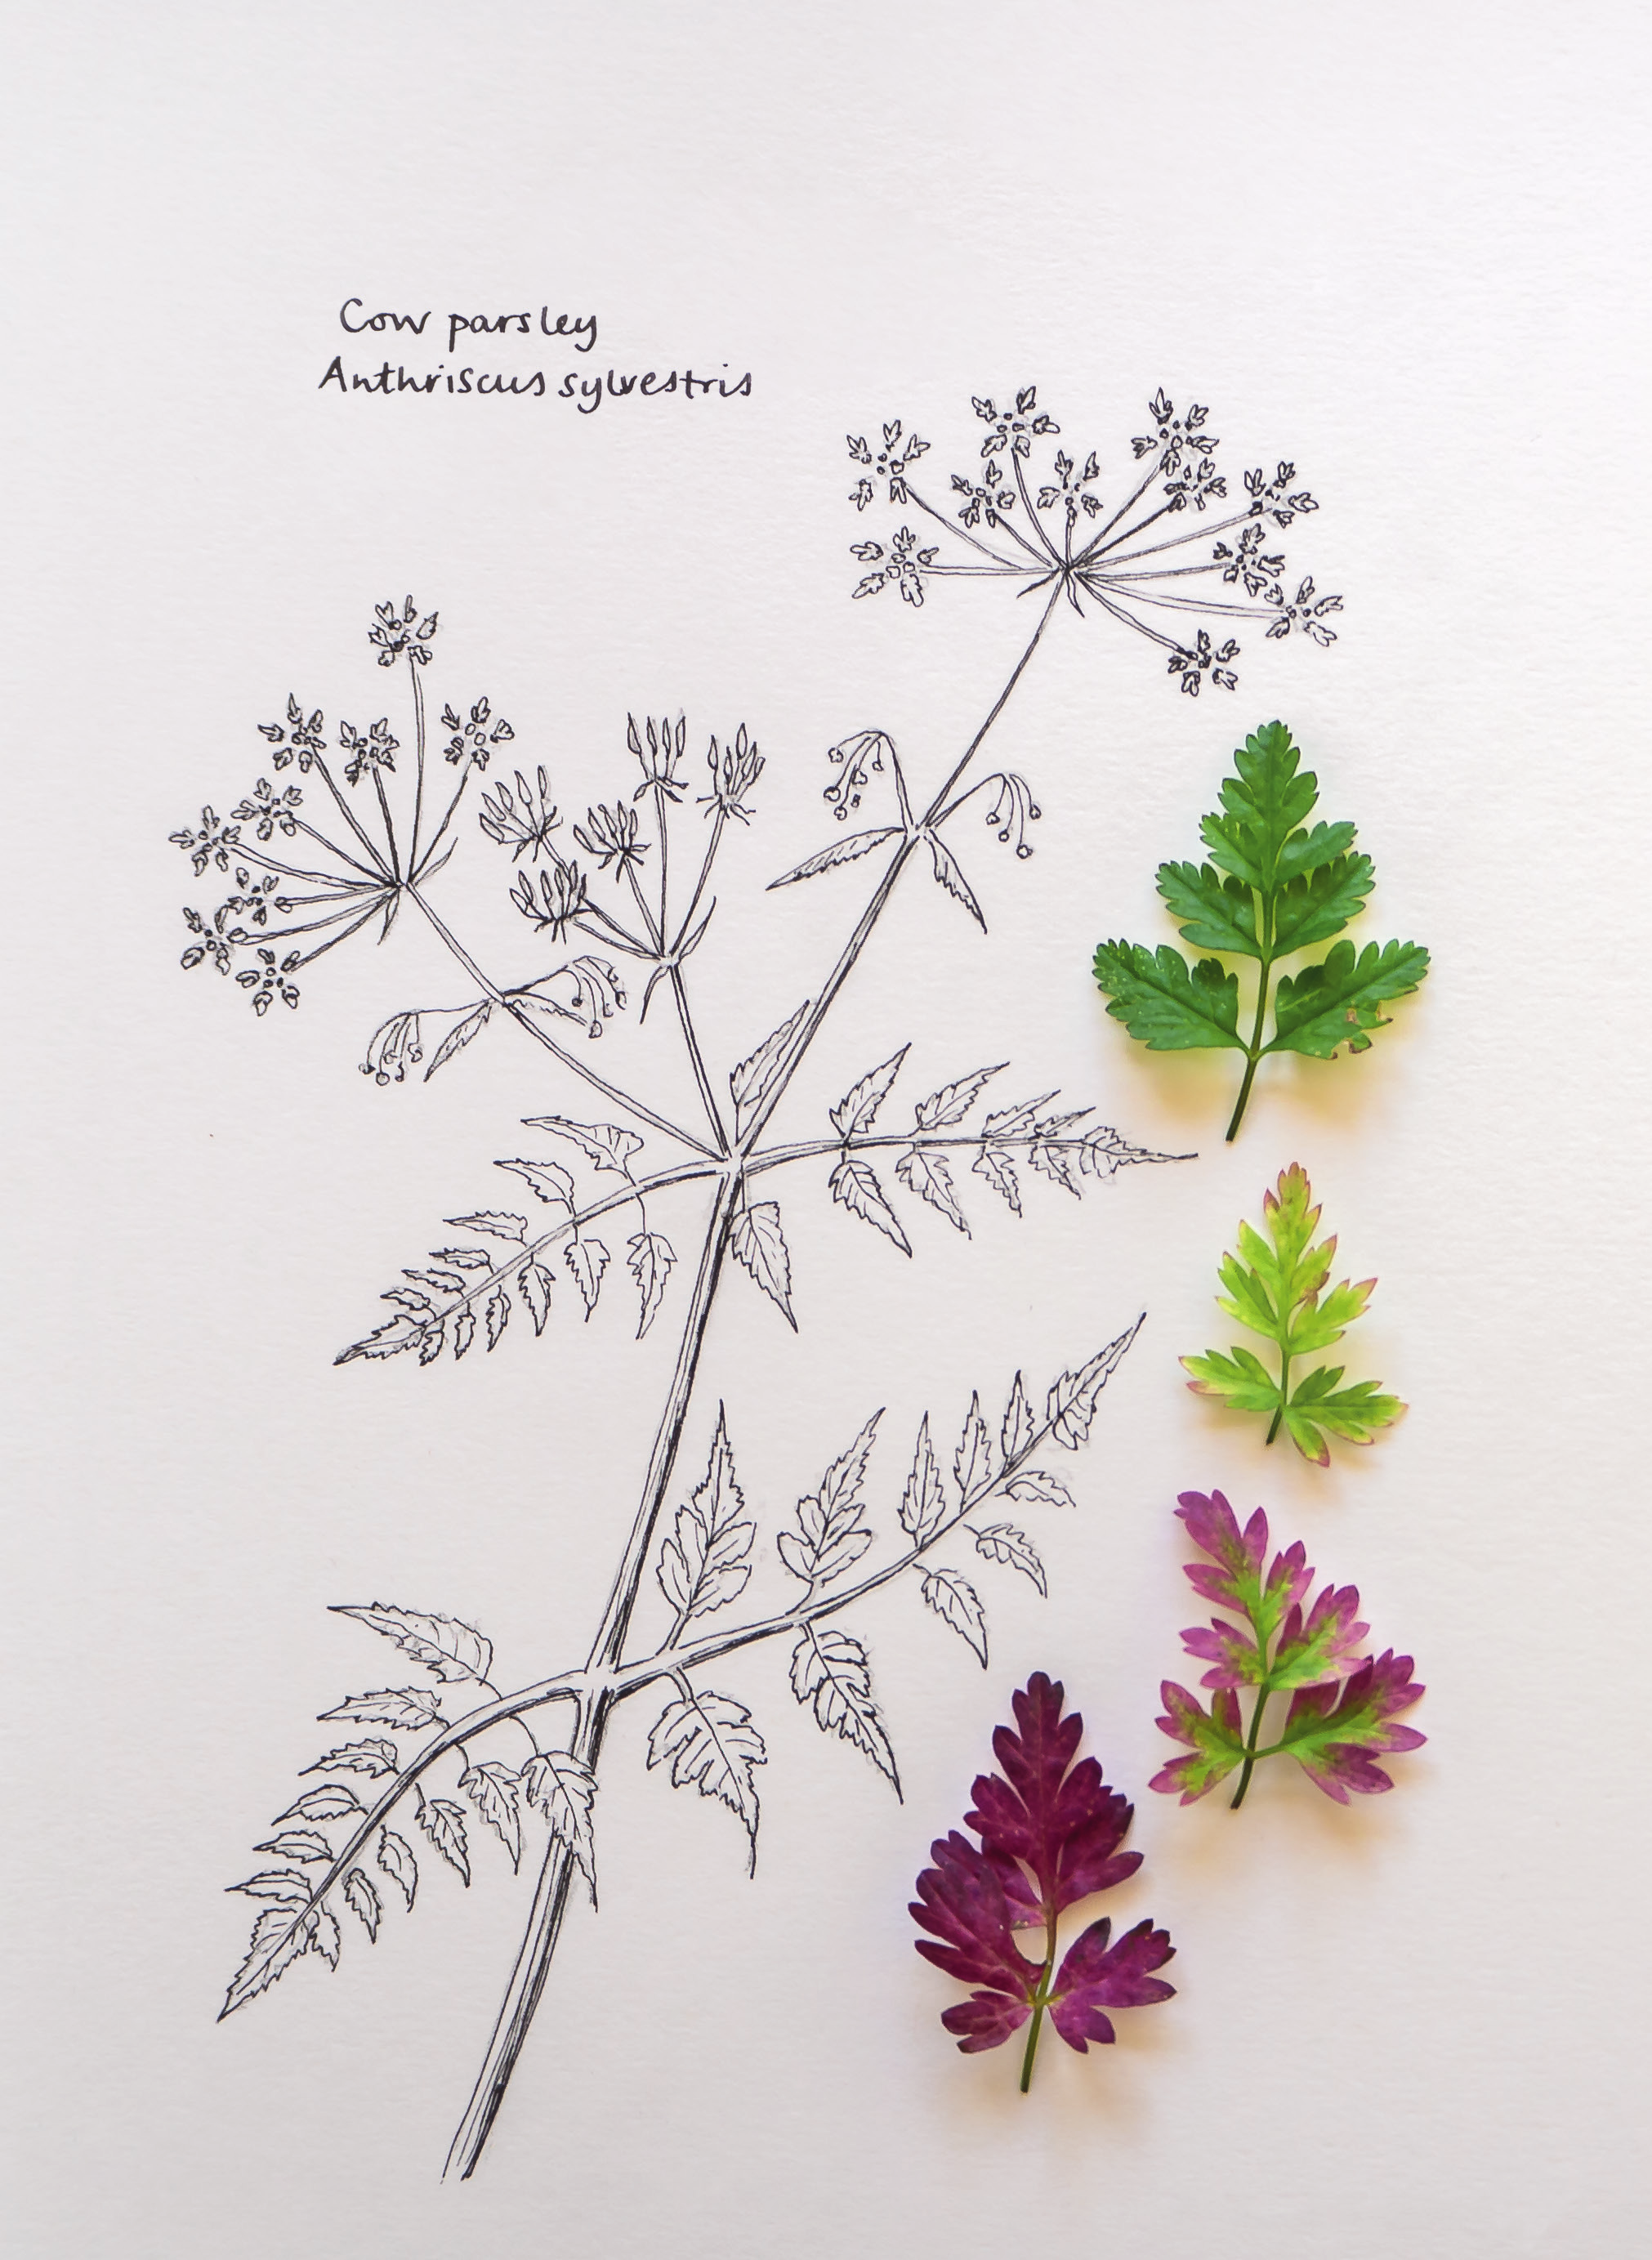 Cow parsley
Anthriscus sylvestris